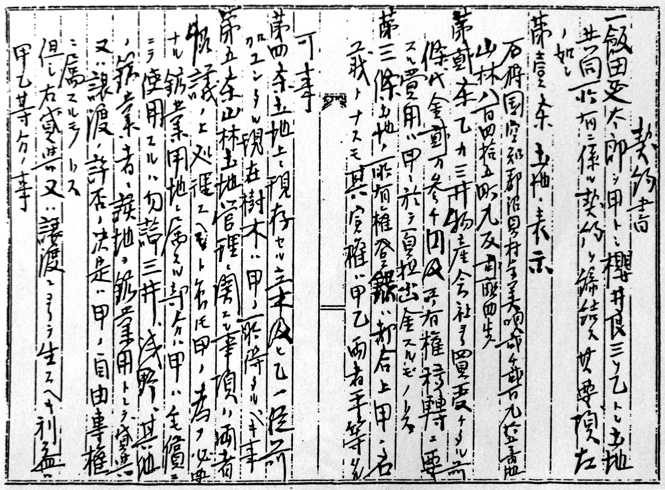 契約書
一飯田延太郎ヲ甲トシ櫻井良三ヲ乙トシ土地
共同所有ニ係ル契約ヲ締結ス其要項左
ノ如シ
第壹条 土地ノ表示
石狩国空知郡沼貝村字美唄
山林八百四拾五町九反
第貳条 乙カ三井物産会社ヨリ買受ケタル前
條代金貳万参千円及所有権移轉ニ要
スル費用ハ甲ニ於テ負担出金スルモノトス
第三條土地ノ所有権登録ハ都合上甲ノ名
義トナスモ其実権ハ甲乙両者平等タル
可事
第四条土地ニ現存セル
現在樹木ハ甲ノ所得タルヘキ事
第五条山林土地ノ管理ニ関スル事項ハ両者
協議ノ上処理スヘキト雖モ甲ノ為メ必要
ナル鉱業用地ニ属スル部分ハ甲ハ無償ニ
テ使用スルハ勿論三井、浅野、其他
ノ鉱業者ニ該地ヲ鉱業用トシテ貸与
又ハ譲渡ノ許否ノ決定ハ甲ノ自由専権
ニ属スルモノトス
但シ右貸与又ハ譲渡ニヨリテ生スヘキ利益ハ
甲乙等分ノ事